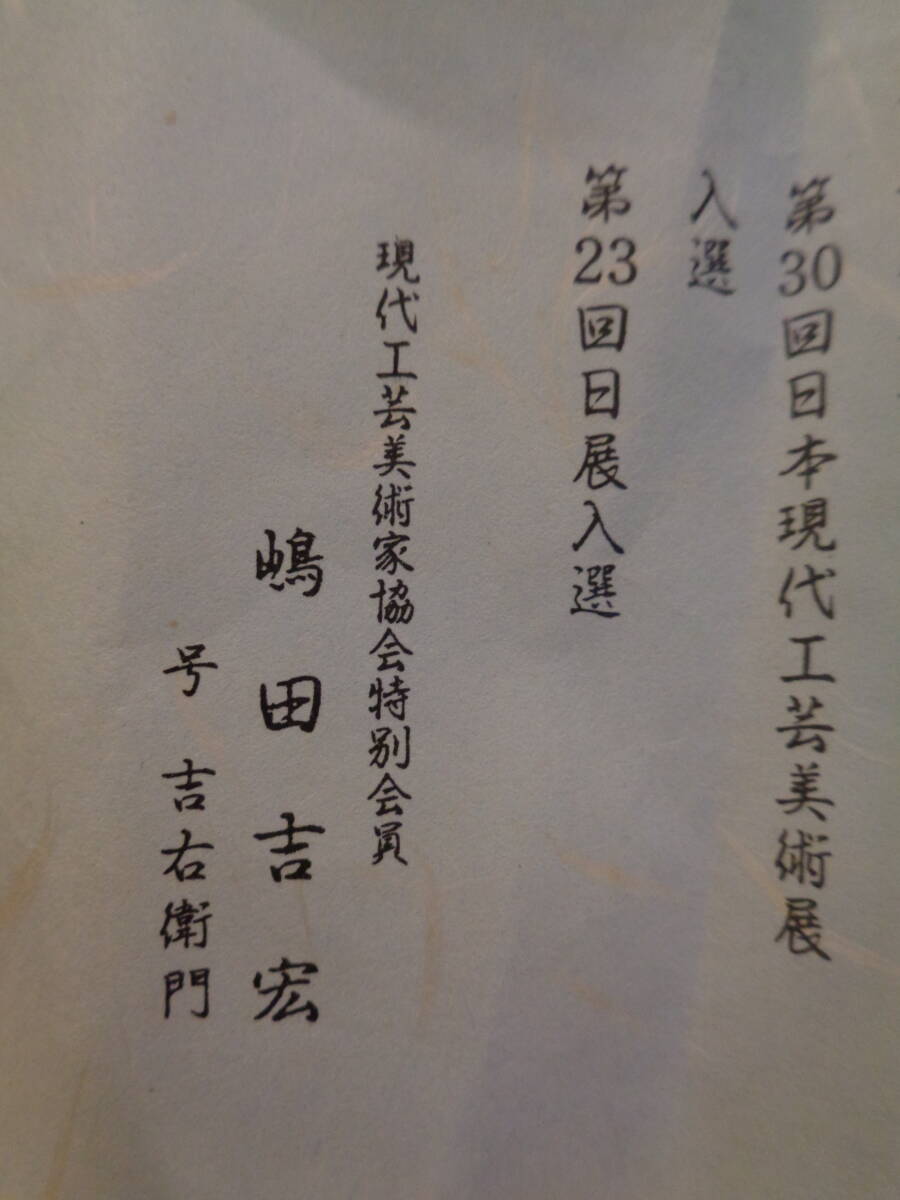 第30回日本現代工芸美術展
入選
第23回日展入選
現代工芸美術家協会特別会員
嶋田吉宏
号 吉右衛門